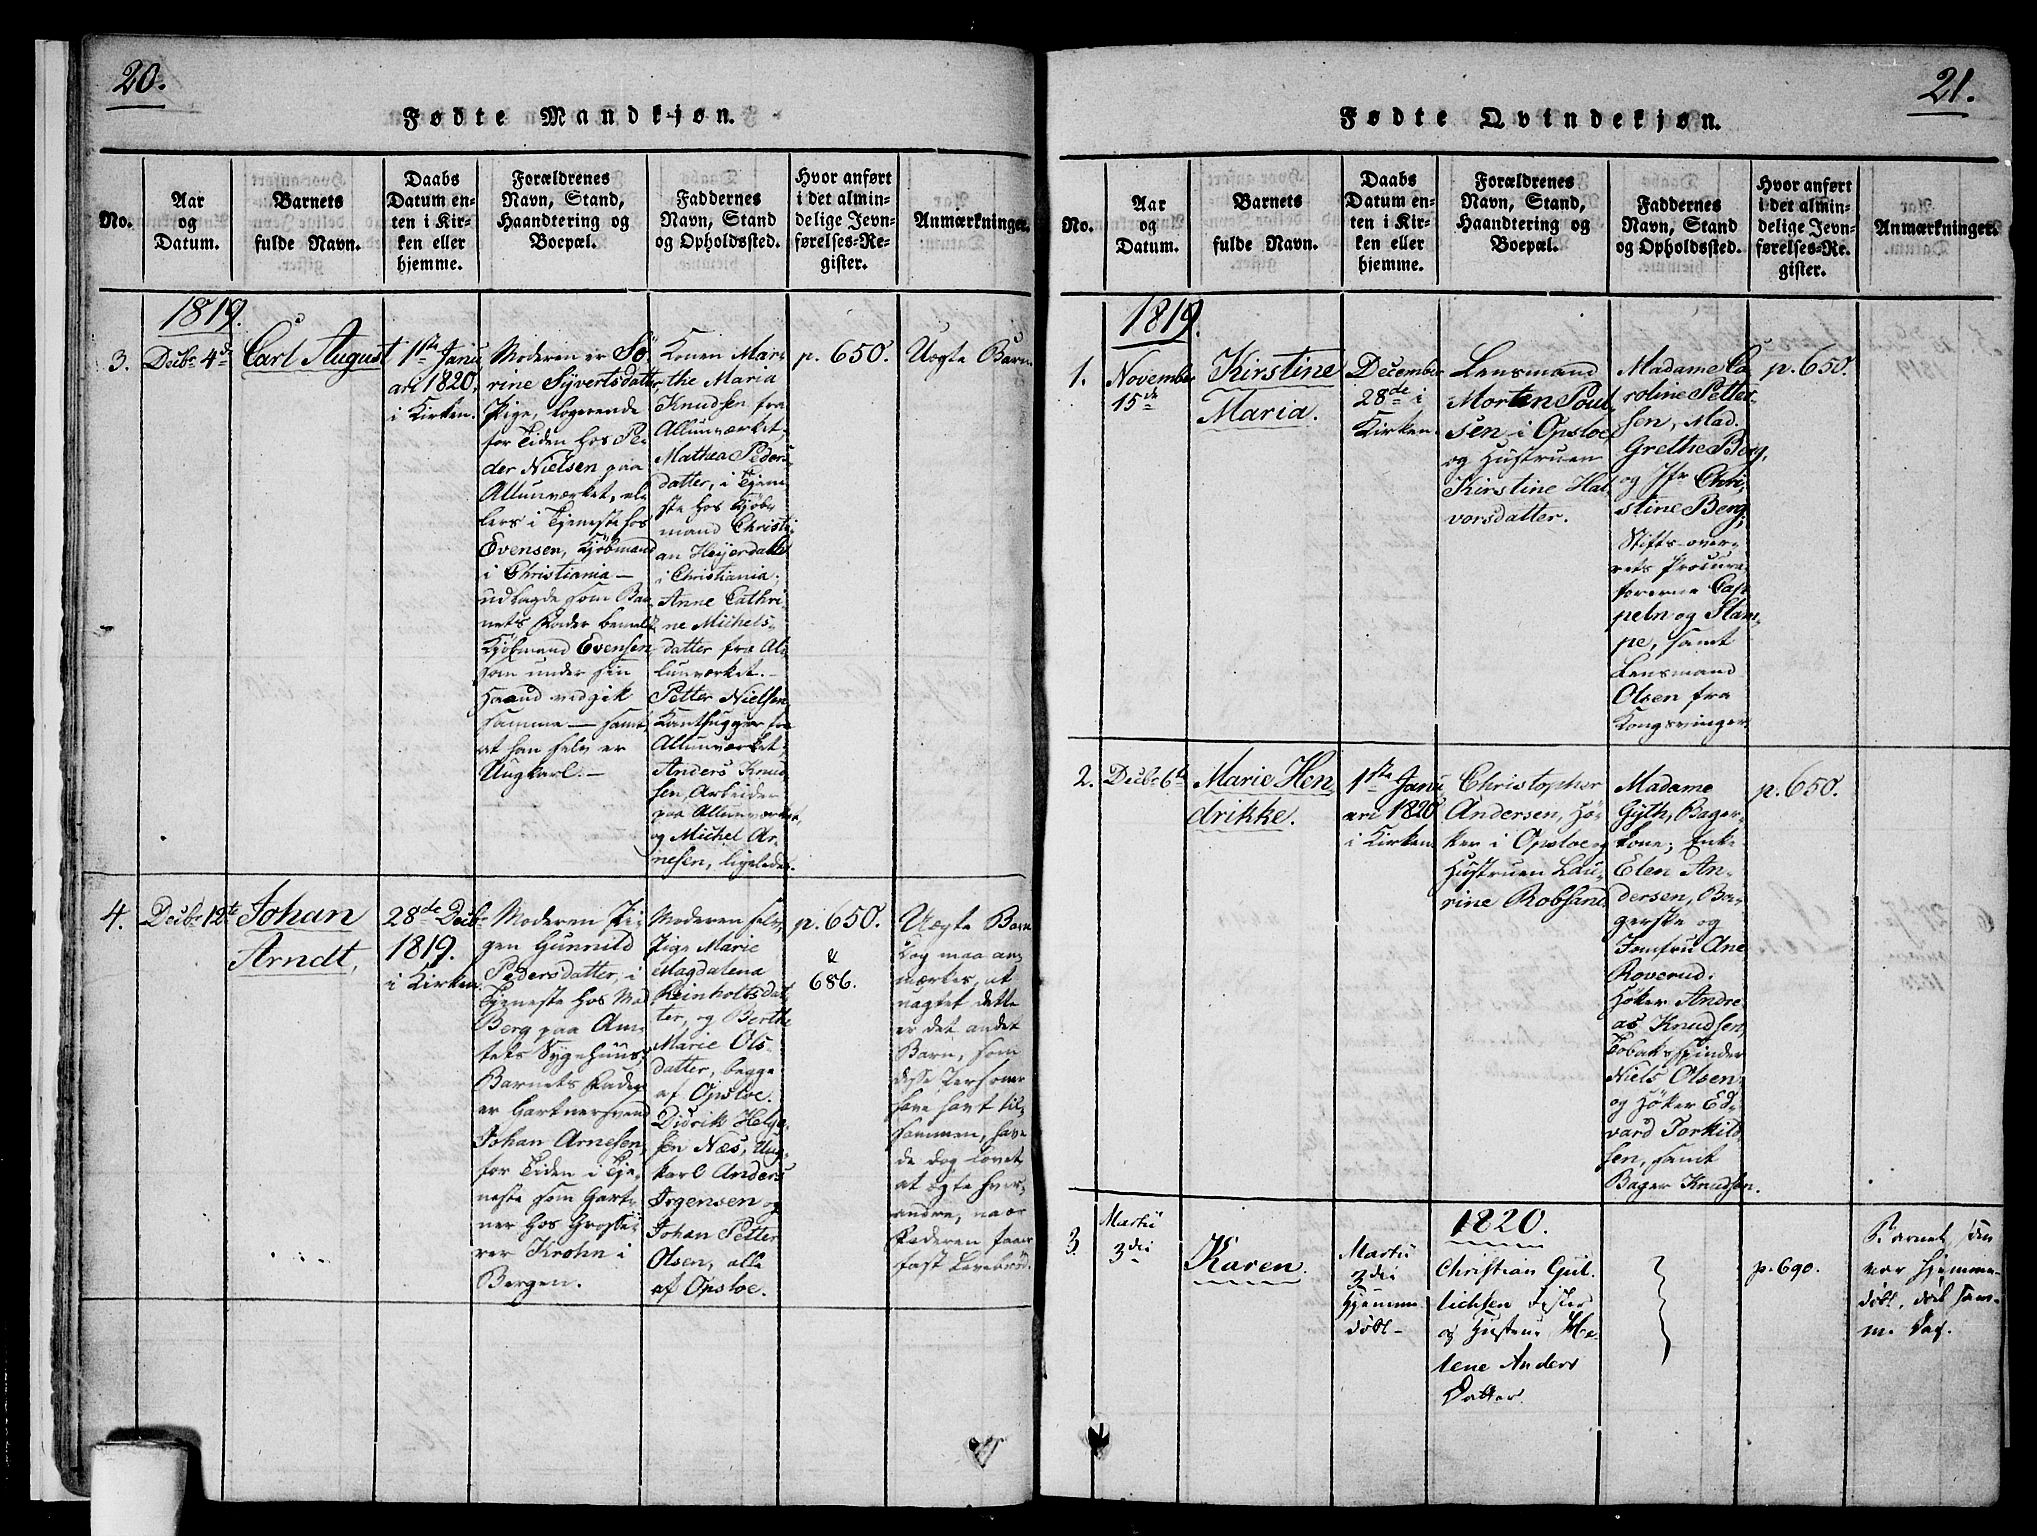 20.
Fødte Mandkjøn.
No.
Aar
og
Datum.
Barnets
fulde Navn.
Daabs
Datum en-
ten i Kir-
ken eller
hjemme.
Forældrenes
Navn, Stand,
Haandtering og
Boepæl.
Faddernes
Navn, Stand
og Opholdssted.
Hvor anført
i det almin-
delige Jevn-
førelses-Re-
gister.
Anmærkninger.
1819.
3.
Decbr 4de
Carl August
1ste Janu
ari 1820,
i Kirken.
Moderen er Sö-
rine Syvertsdatter,
Pige, logerende
for Tiden hos Pe-
der Nielsen paa
Allunværket, el-
lers i Tjeneste hos
Evensen, Kjöbmand
i Christiania —
udlagde som Bar-
nets Fader bemeldte
Kjöbmand Evensen,
som under sin
Haand vedgik
samme — samt,
at han selv er
Ungkarl. —
Konen Mari
the Maria
Knudsen fra
Allunværket,
Mathea Peders
datter, i Tjene
ste hos Kjöb-
mand Christi
an Heyerdahl
i Christiania.
Anne Cathri-
ne Michels-
datter fra Al-
lunværket. —
Petter Nielsen
Kanthugger fra
Allunværket,
Anders Knud
sen, Arbeider
paa Allunværket,
og Michel Ar-
nesen, ligeledes.
p. 650.
Uægte Barn.
4.
Decbr 12te
Johan
Arndt,
28de Decbr
1819.
i Kirken.
Moderen Pi-
gen Gunnild
Pedersdatter, i
Tjeneste hos Md
Berg paa Am-
tets Sygehuus,
Barnets Fader
er Gartnersvend
Johan Arnesen,
for Tiden i Tje-
neste som Gart-
ner hos Grosse-
rer Krohn i
Bergen.
Moderen selv,
Pige Marie
Magdalena
Reinholtsdat
ter, og Berthe
Marie Ols-
datter, begge
af Opsloe.
Didrik Helge-
sen Næs, Ung
karl Anders
Jrgensen og
Johan Petter
Olsen, alle
af Opsloe.
p. 650.
&
686.
Uægte Barn
Dog maa an-
mærkes, at
uagtet dette
er det andet
Barn, som
disse Personer
have havt til-
sammen, have
de dog lovet
at ægte hver-
andre, naar
Faderen faaer
fast Levebröd.
21.
Fødte Qvindekjøn.
No.
Aar
og
Datum.
Barnets
fulde Navn.
Daabs
Datum en-
ten i Kir-
ken eller
hjemme.
Forældrenes
Navn, Stand,
Haandtering og
Boepæl.
Faddernes
Navn, Stand
og Opholdssted.
Hvor anført
i det almin-
delige Jevn-
førelses-Re-
gister.
Anmærkninger.
1819.
1.
November
15de
Kirstine
Maria.
December
28de i
Kirken.
Lensmand
Morten Poul
sen i Opsloe,
og Hustruen
Kirstine Hal
vorsdatter.
Madame Ca
roline Petter-
sen, Mad.
Grethe Berg,
og Jfr Chri-
stine Berg,
Stifts-over-
rets Procura
torerne Cap
peln og Slam-
pe, samt
Lensmand
Olsen fra
Kongsvinger
p. 650.
2.
Decbr 6te
Marie Hen
drikke.
1ste Janu
ari 1820
i Kirken
Christopher
Andersen, Hö-
ker i Opsloe og
Hustruen Lau-
rine Robsand
Madame
Gyth, Bager-
kone; Enke
Elen An-
dersen, Ba-
gerske og
Jomfru Ane
Roverud.
Höker Andre
as Knudsen,
Tobaksspinder
Niels Olsen,
og Höker Ed-
vard Torkild
sen, samt
Bager Knudsen.
p. 650.
3
Martii
3die
Karen
Martii
3die
Hjemme
döbt —
1820.
Christian Gul-
lichsen Fisker
og Hustrue He-
lene Anders
Datter
p. 690.
Barnet, der
var hjemme-
döbt, döde sam-
me Dag.